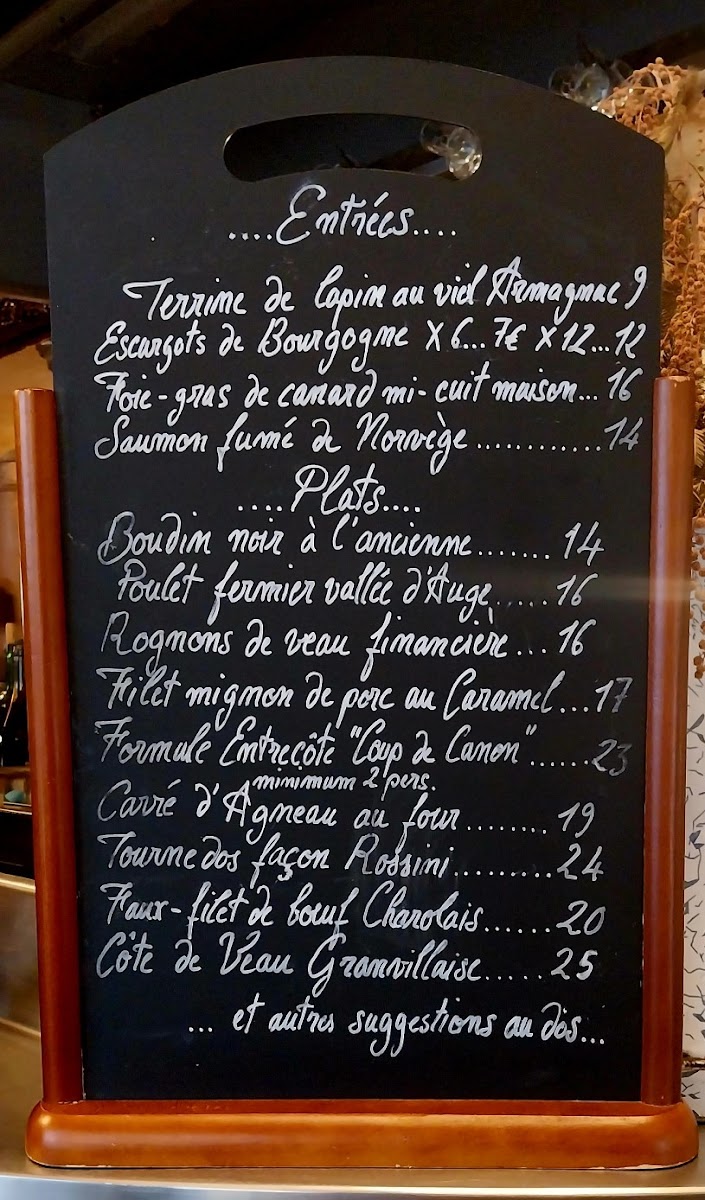 ....Entrées....
Terrine de lapin au vieil Armagnac 9
Escargots de Bourgogne X 6... 7€ X 12...12
Foie-gras de canard mi-cuit maison... 16
Saumon fumé de Norvège.............14
....Plats....
Boudin noir à l'ancienne....... 14
Poulet fermier vallée d'Auge......16
Rognons de veau financière... 16
Filet mignon de porc au Caramel...17
Formule Entrecôte "Coup de Canon"......23
minimum 2 pers.
Carré d'Agneau au four........ 19
Tournedos façon Rossini..........24
Faux-filet de bœuf Charolais......20
Côte de Veau Granvillaise......25
... et autres suggestions au dos...